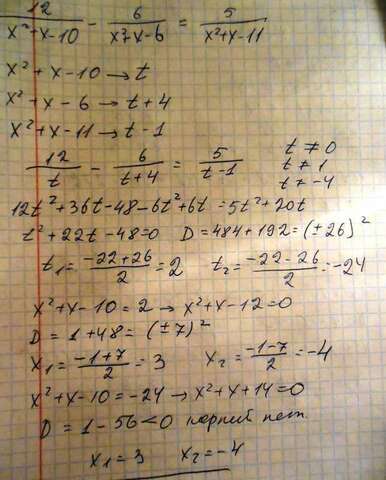 12/(x²+x-10) - 6/(x²+x-6) = 5/(x²+x-11)
x²+x-10 → t
x²+x-6 → t+4
x²+x-11 → t-1
12/t - 6/(t+4) = 5/(t-1) t ≠ 0
t ≠ 1
t ≠ -4
12t²+36t-48-6t²+6t=5t²+20t
t²+22t-48=0 D=484+192=(±26)²
t₁=(-22+26)/2=2 t₂=(-22-26)/2=-24
x²+x-10=2 → x²+x-12=0
D=1+48=(±7)²
x₁=(-1+7)/2=3 x₂=(-1-7)/2=-4
x²+x-10=-24 → x²+x+14=0
D=1-56<0 корней нет.
x₁=3 x₂=-4